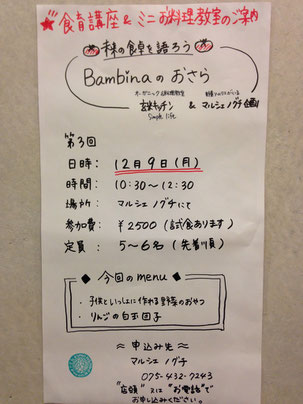 ★食育講座 & ミニお料理教室のご案内
食卓を語ろう
Bambinaの おさら
オーガニックお料理教室
玄米キッチン
Simple life
& マルシェ ノグチ 企画
第3回
日時: 12月9日(月)
時間: 10:30〜12:30
場所: マルシェ ノグチにて
参加費: ¥2500(試食あります)
定員: 5〜6名(先着順)
◆ 今回のmenu ◆
・子供といっしょに作れる野菜のおやつ
・りんごの白玉団子
≈ 申込み先 ≈
マルシェ ノグチ
075-432-7243
"店頭" 又は "お電話"で
お申し込みください。